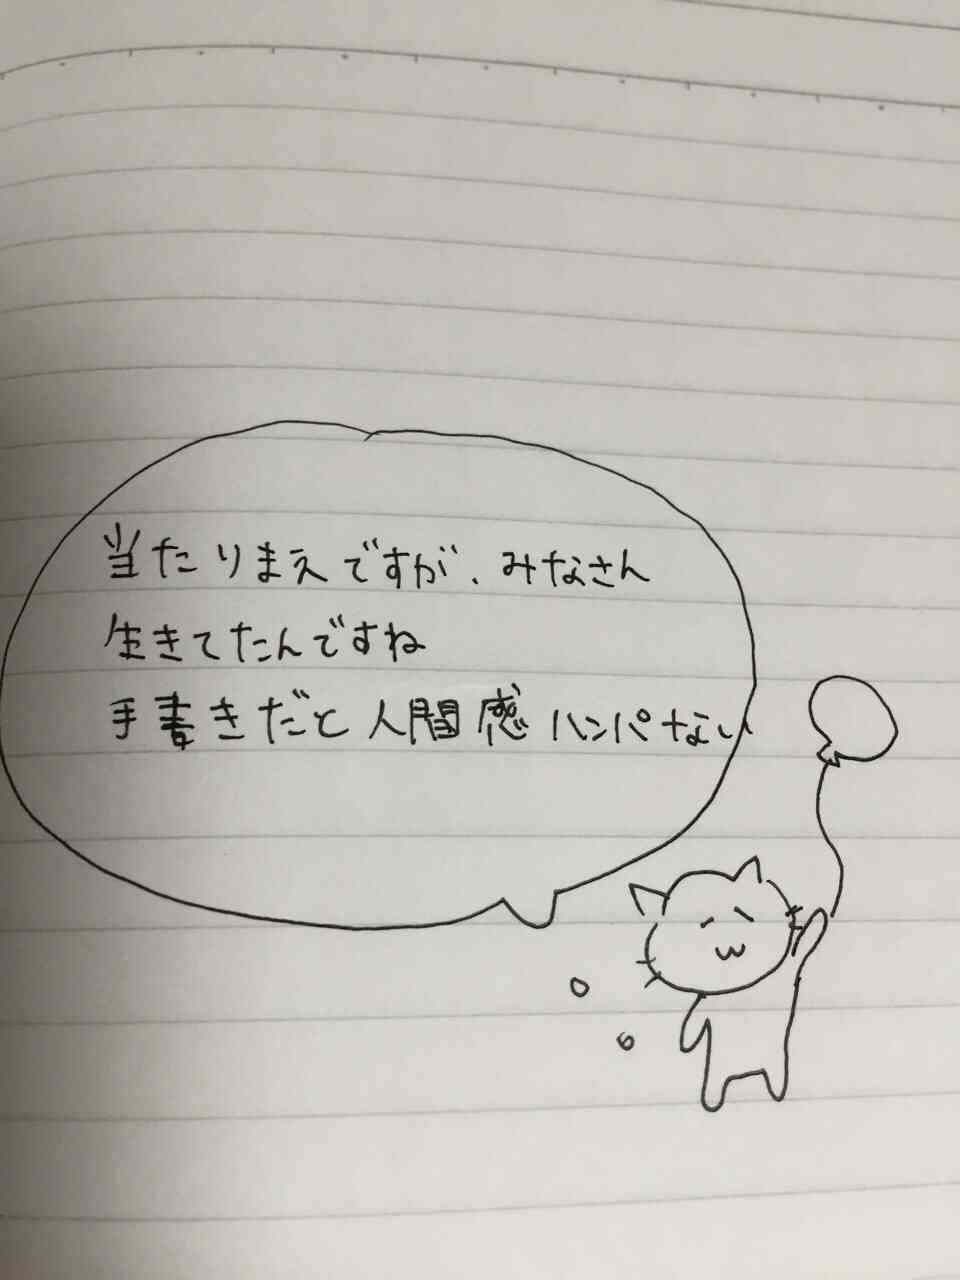 当たりまえですが、みなさん
生きてたんですね
手書きだと人間感ハンパない